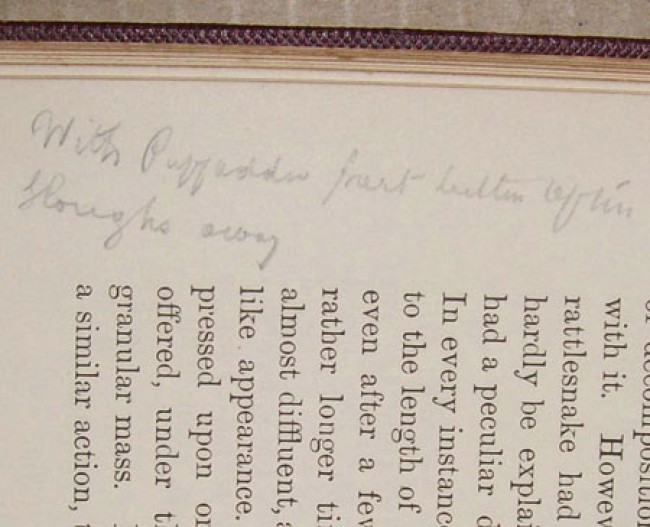 With Puffadder part bitten often
sloughs away
of decomposition
with it. Howev
rattlesnake had
hardly be explai
had a peculiar d
In every instanc
to the length of
even after a few
rather longer ti
almost diffluent, a
like appearance.
pressed upon or
offered, under t
granular mass.
a similar action, t